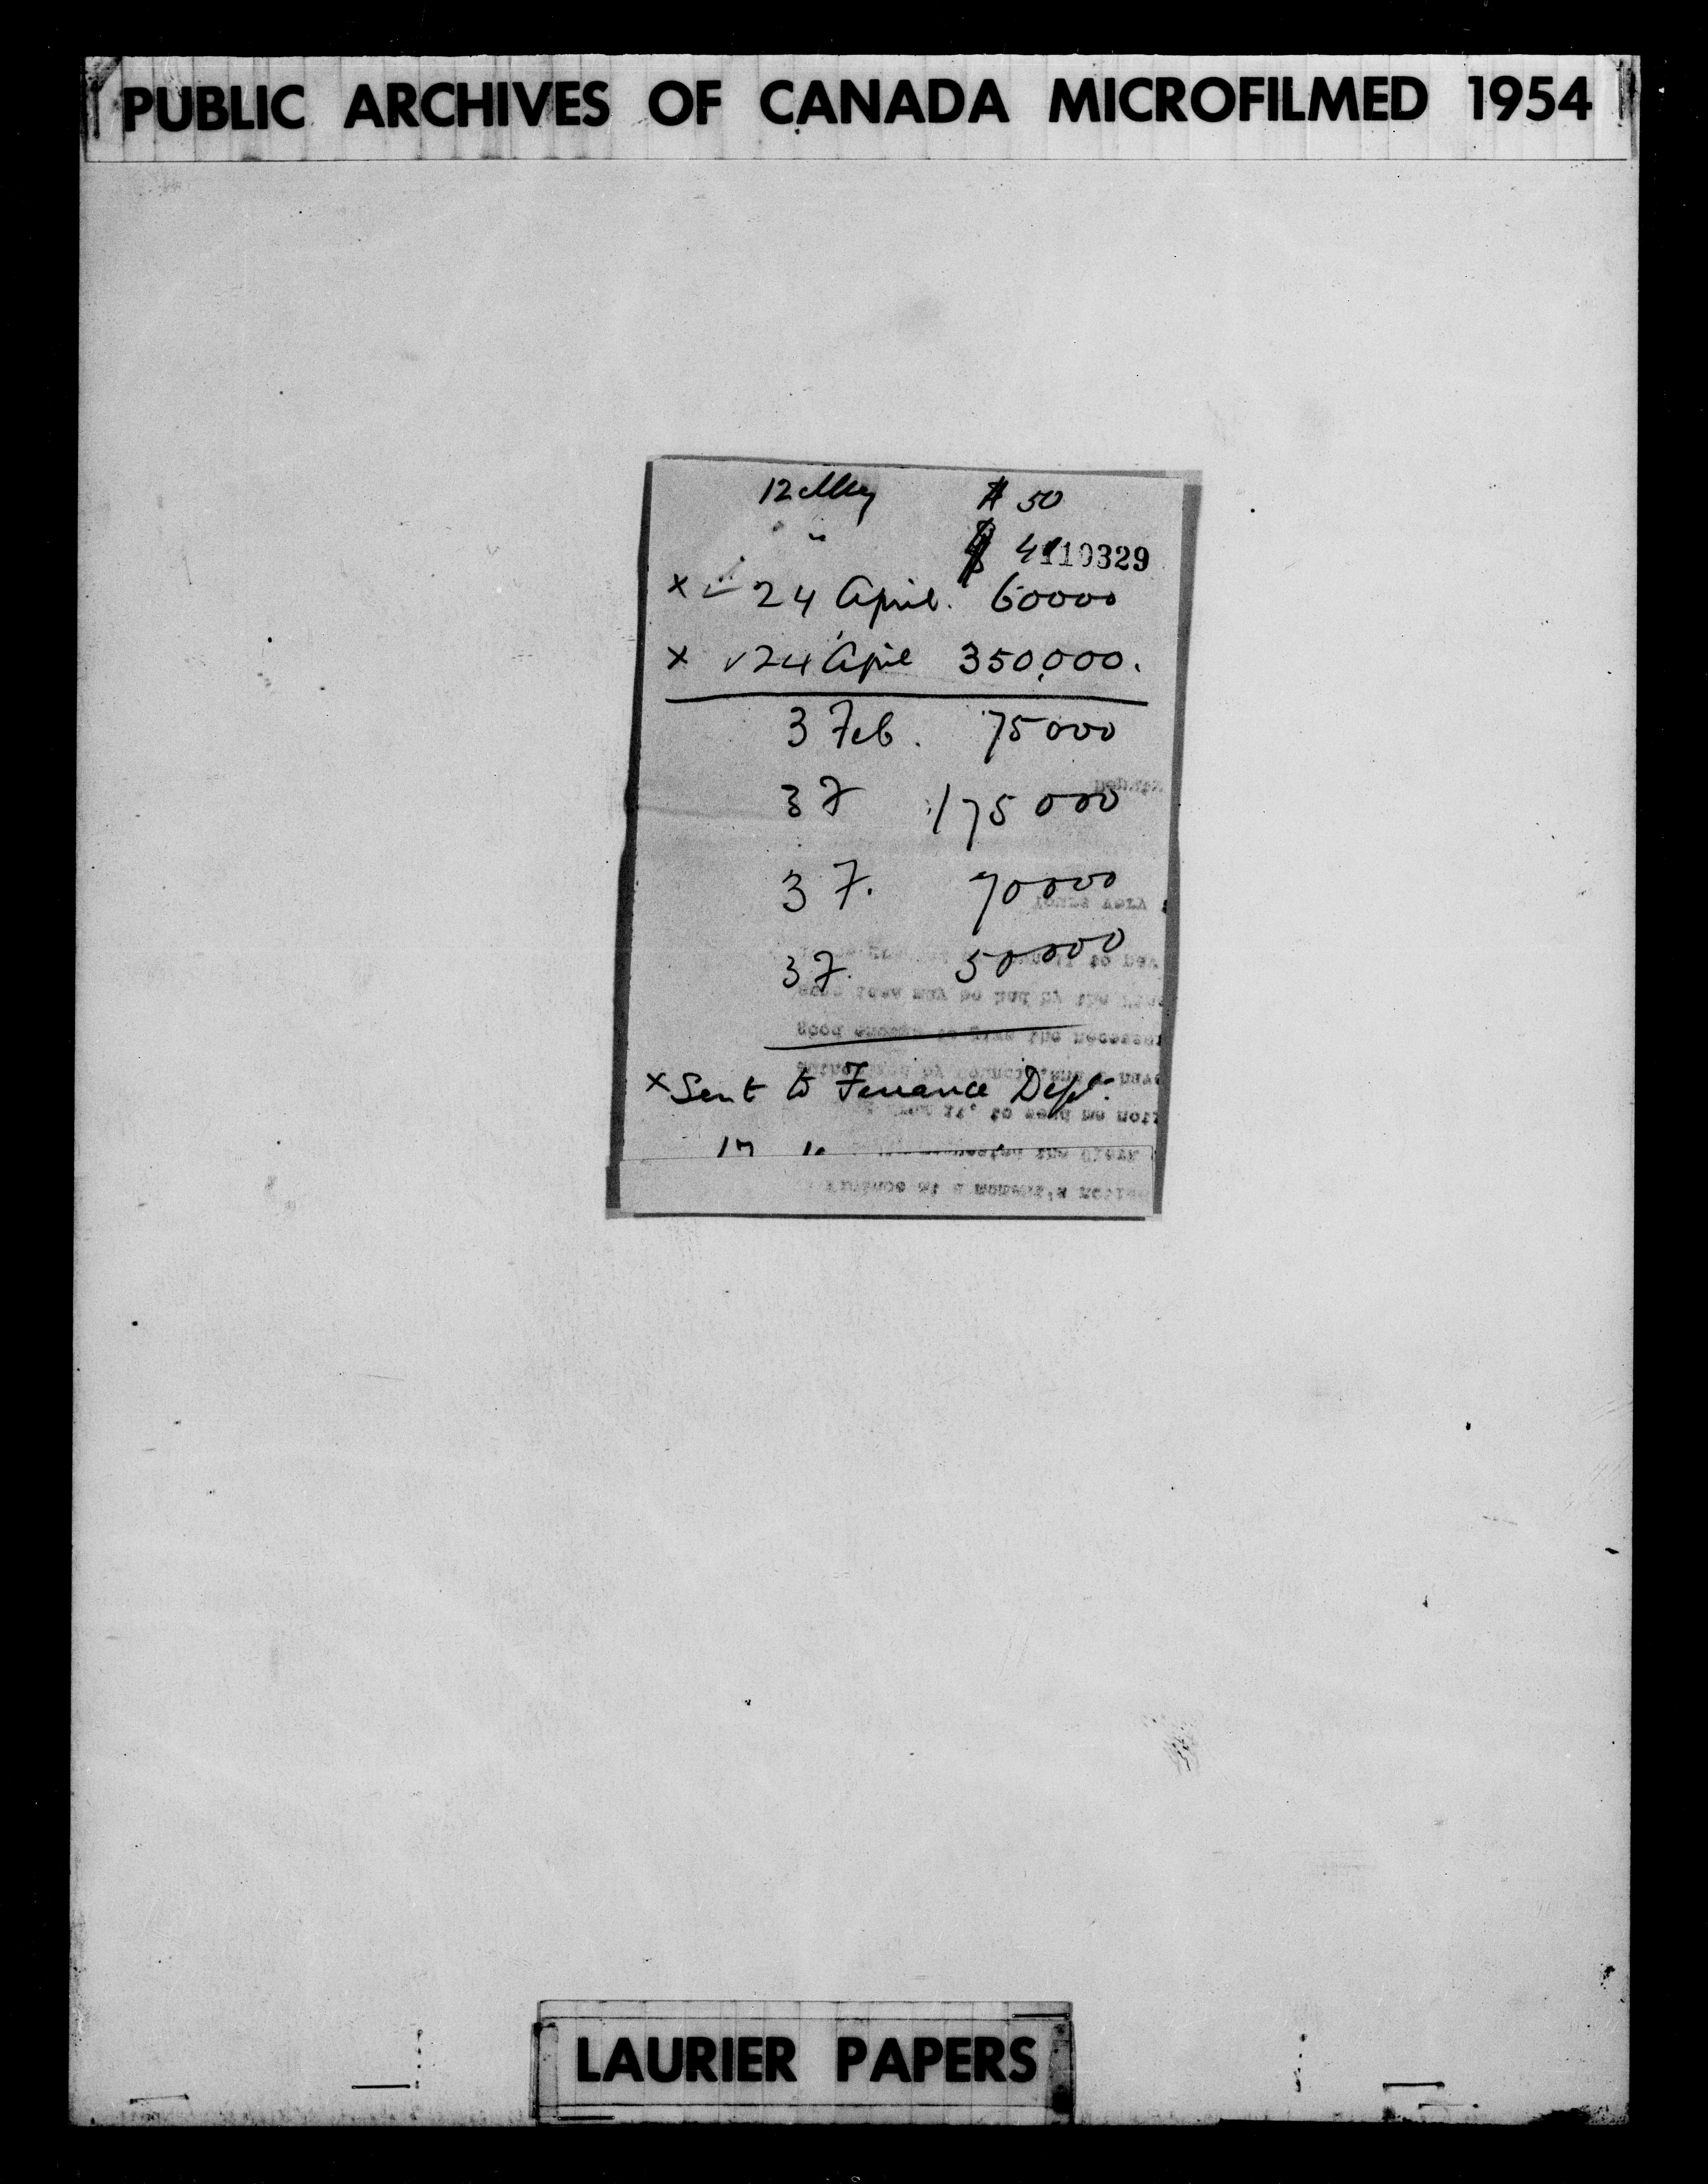 PUBLIC ARCHIVES OF CANADA MICROFILMED 1954
12 May $ 50
" $ 4
110329
x 24 April. 60000
x √24 April 350,000.
3 Feb. 75000
3 F 175000
3 F. 70000
3 F. 50000
x Sent to Finance Dept.
LAURIER PAPERS